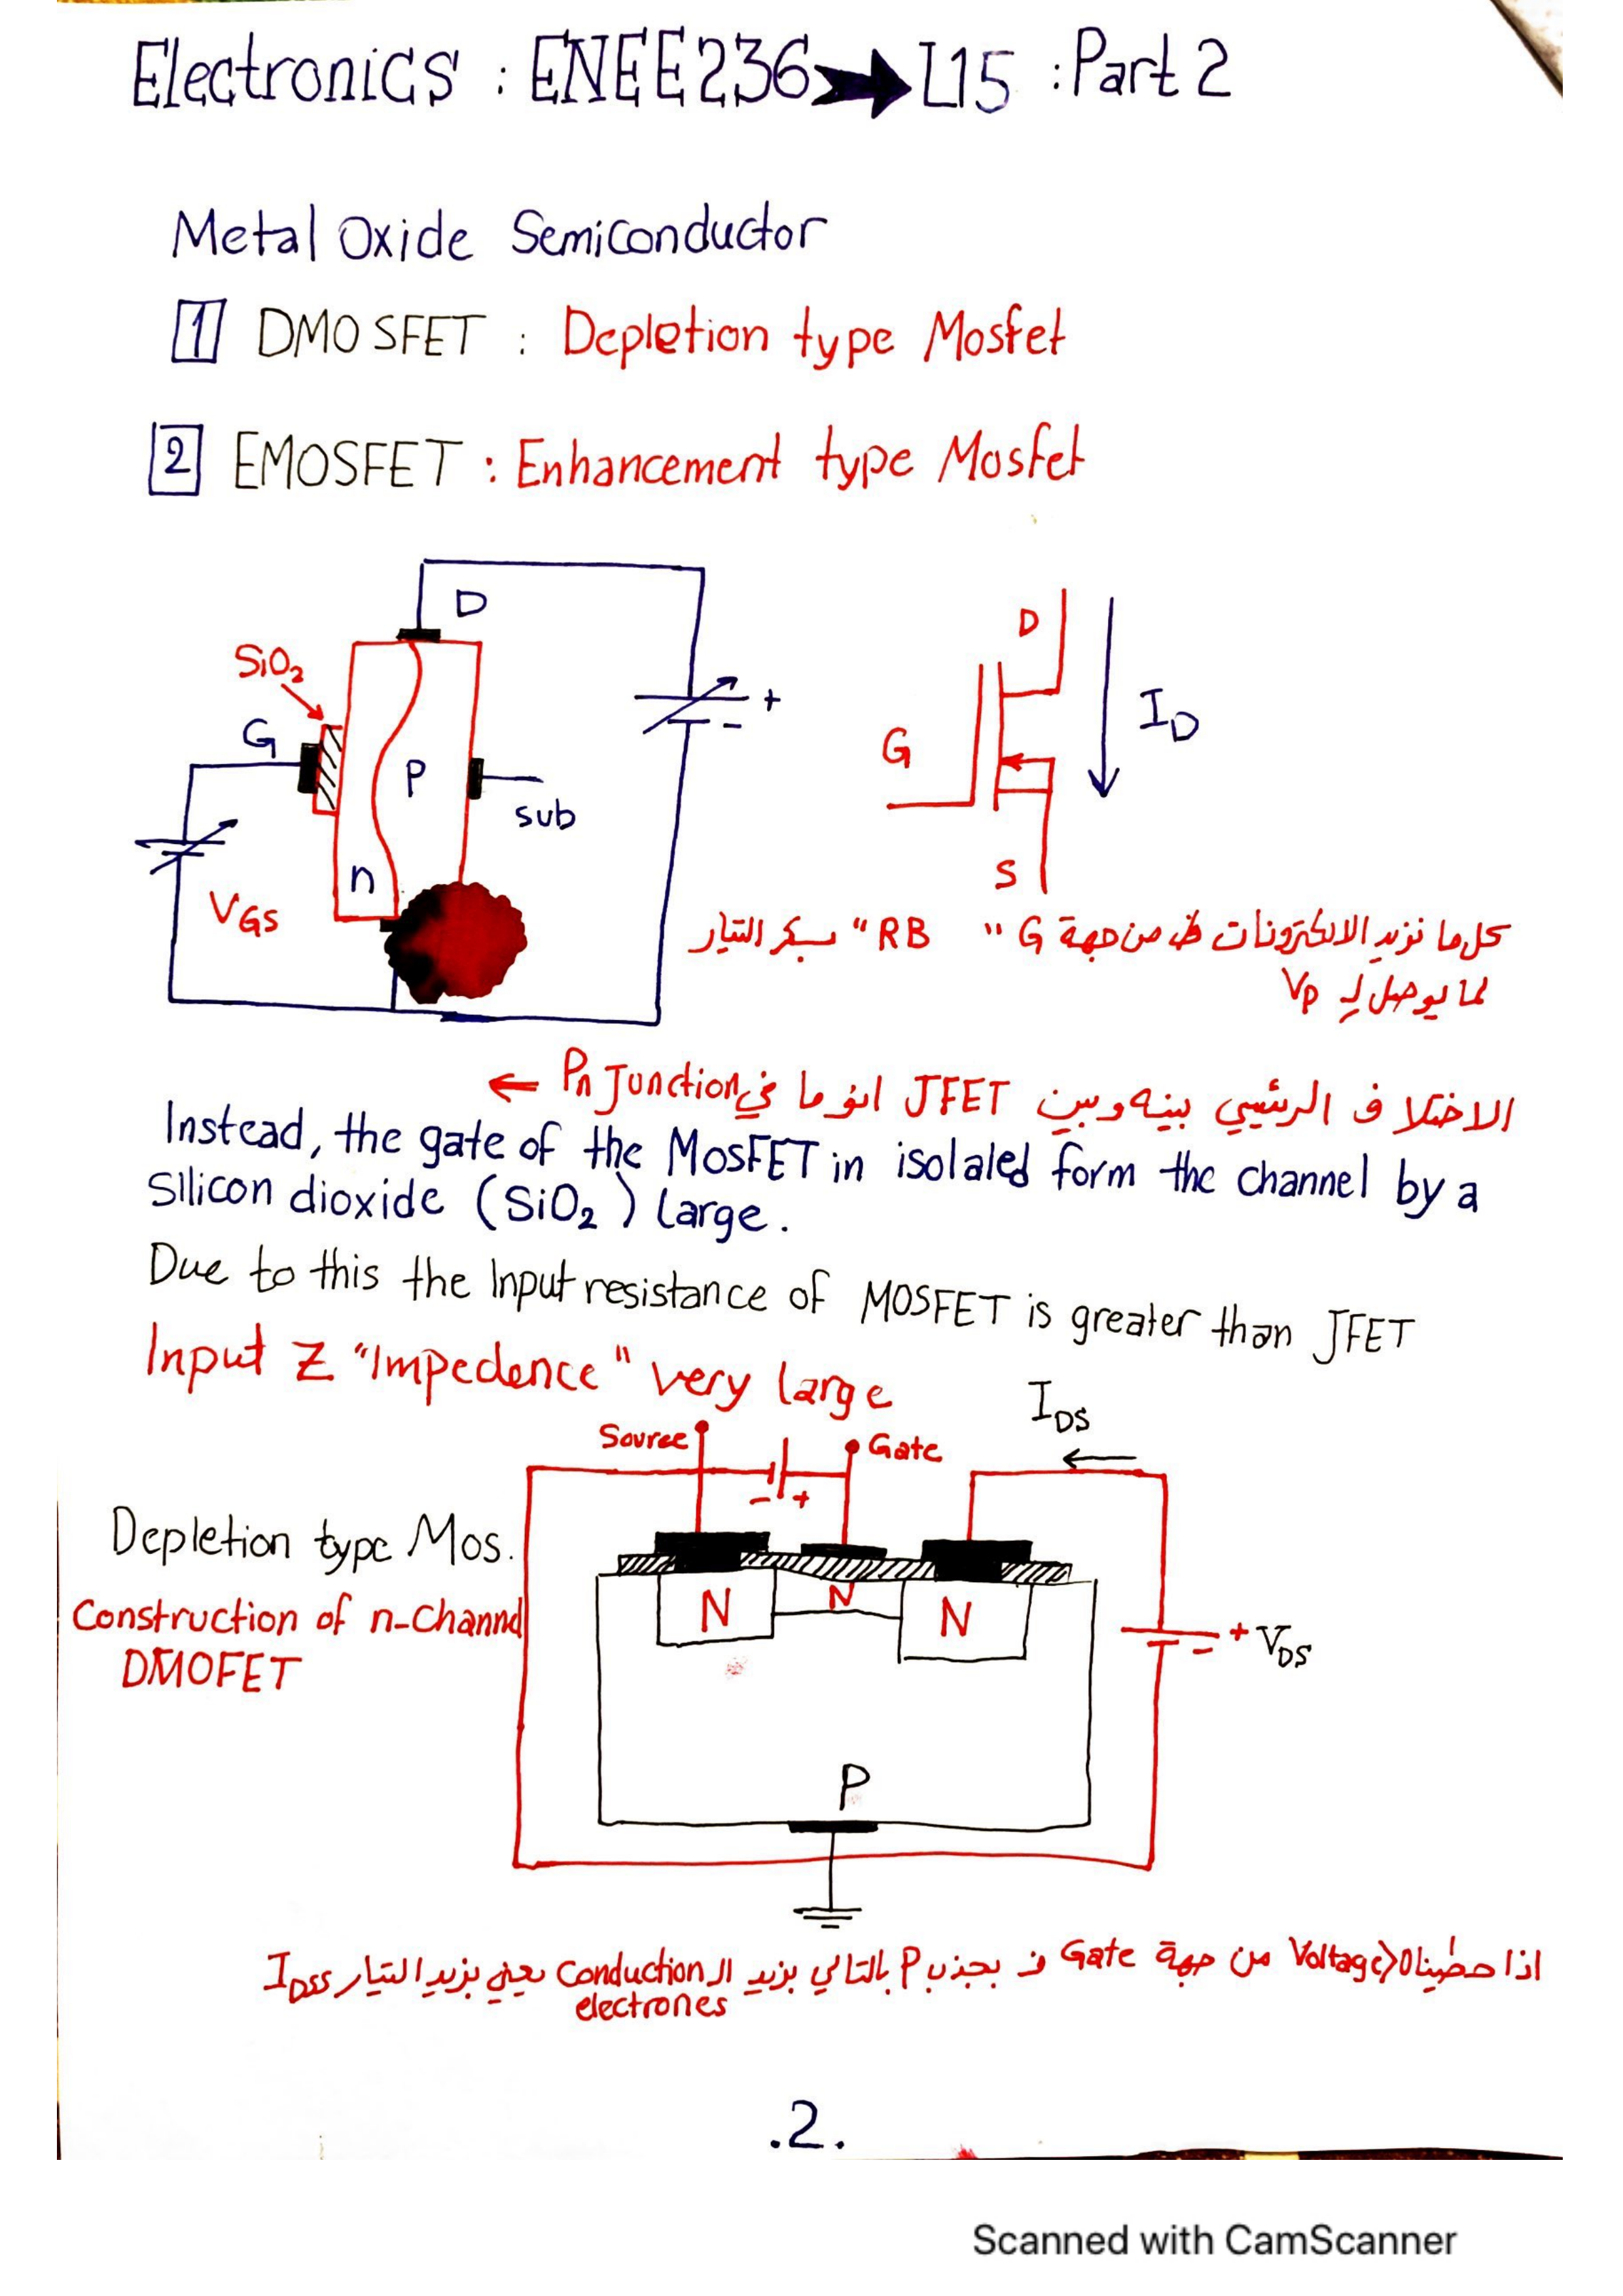 Electronics : ENEE236 → L15 : Part 2
Metal Oxide Semiconductor
1 DMOSFET : Depletion type Mosfet
2 EMOSFET : Enhancement type Mosfet
D
SiO2
G
P
sub
n
VGS
+
-
D
G
S
ID
كل ما نزيد الالكترونات من جهة G "RB" بسكر التيار
لما يوصل لـ Vp
الاختلاف الرئيسي بينه وبين JFET انو ما في Pn Junction ←
Instead, the gate of the MosFET in isolaled form the channel by a
Silicon dioxide (SiO2) large.
Due to this the Input resistance of MOSFET is greater than JFET
Input Z "Impedence" very large
IDS
←
Source
Gate
- +
Depletion type Mos.
Construction of n-Channel
DMOFET
N
N
N
+
-
VDS
P
اذا حطينا Voltage>0 من جهة Gate ف بجذب P بالتالي بزيد ال Conduction يعني بزيد التيار IDSS
electrones
.2.
Scanned with CamScanner